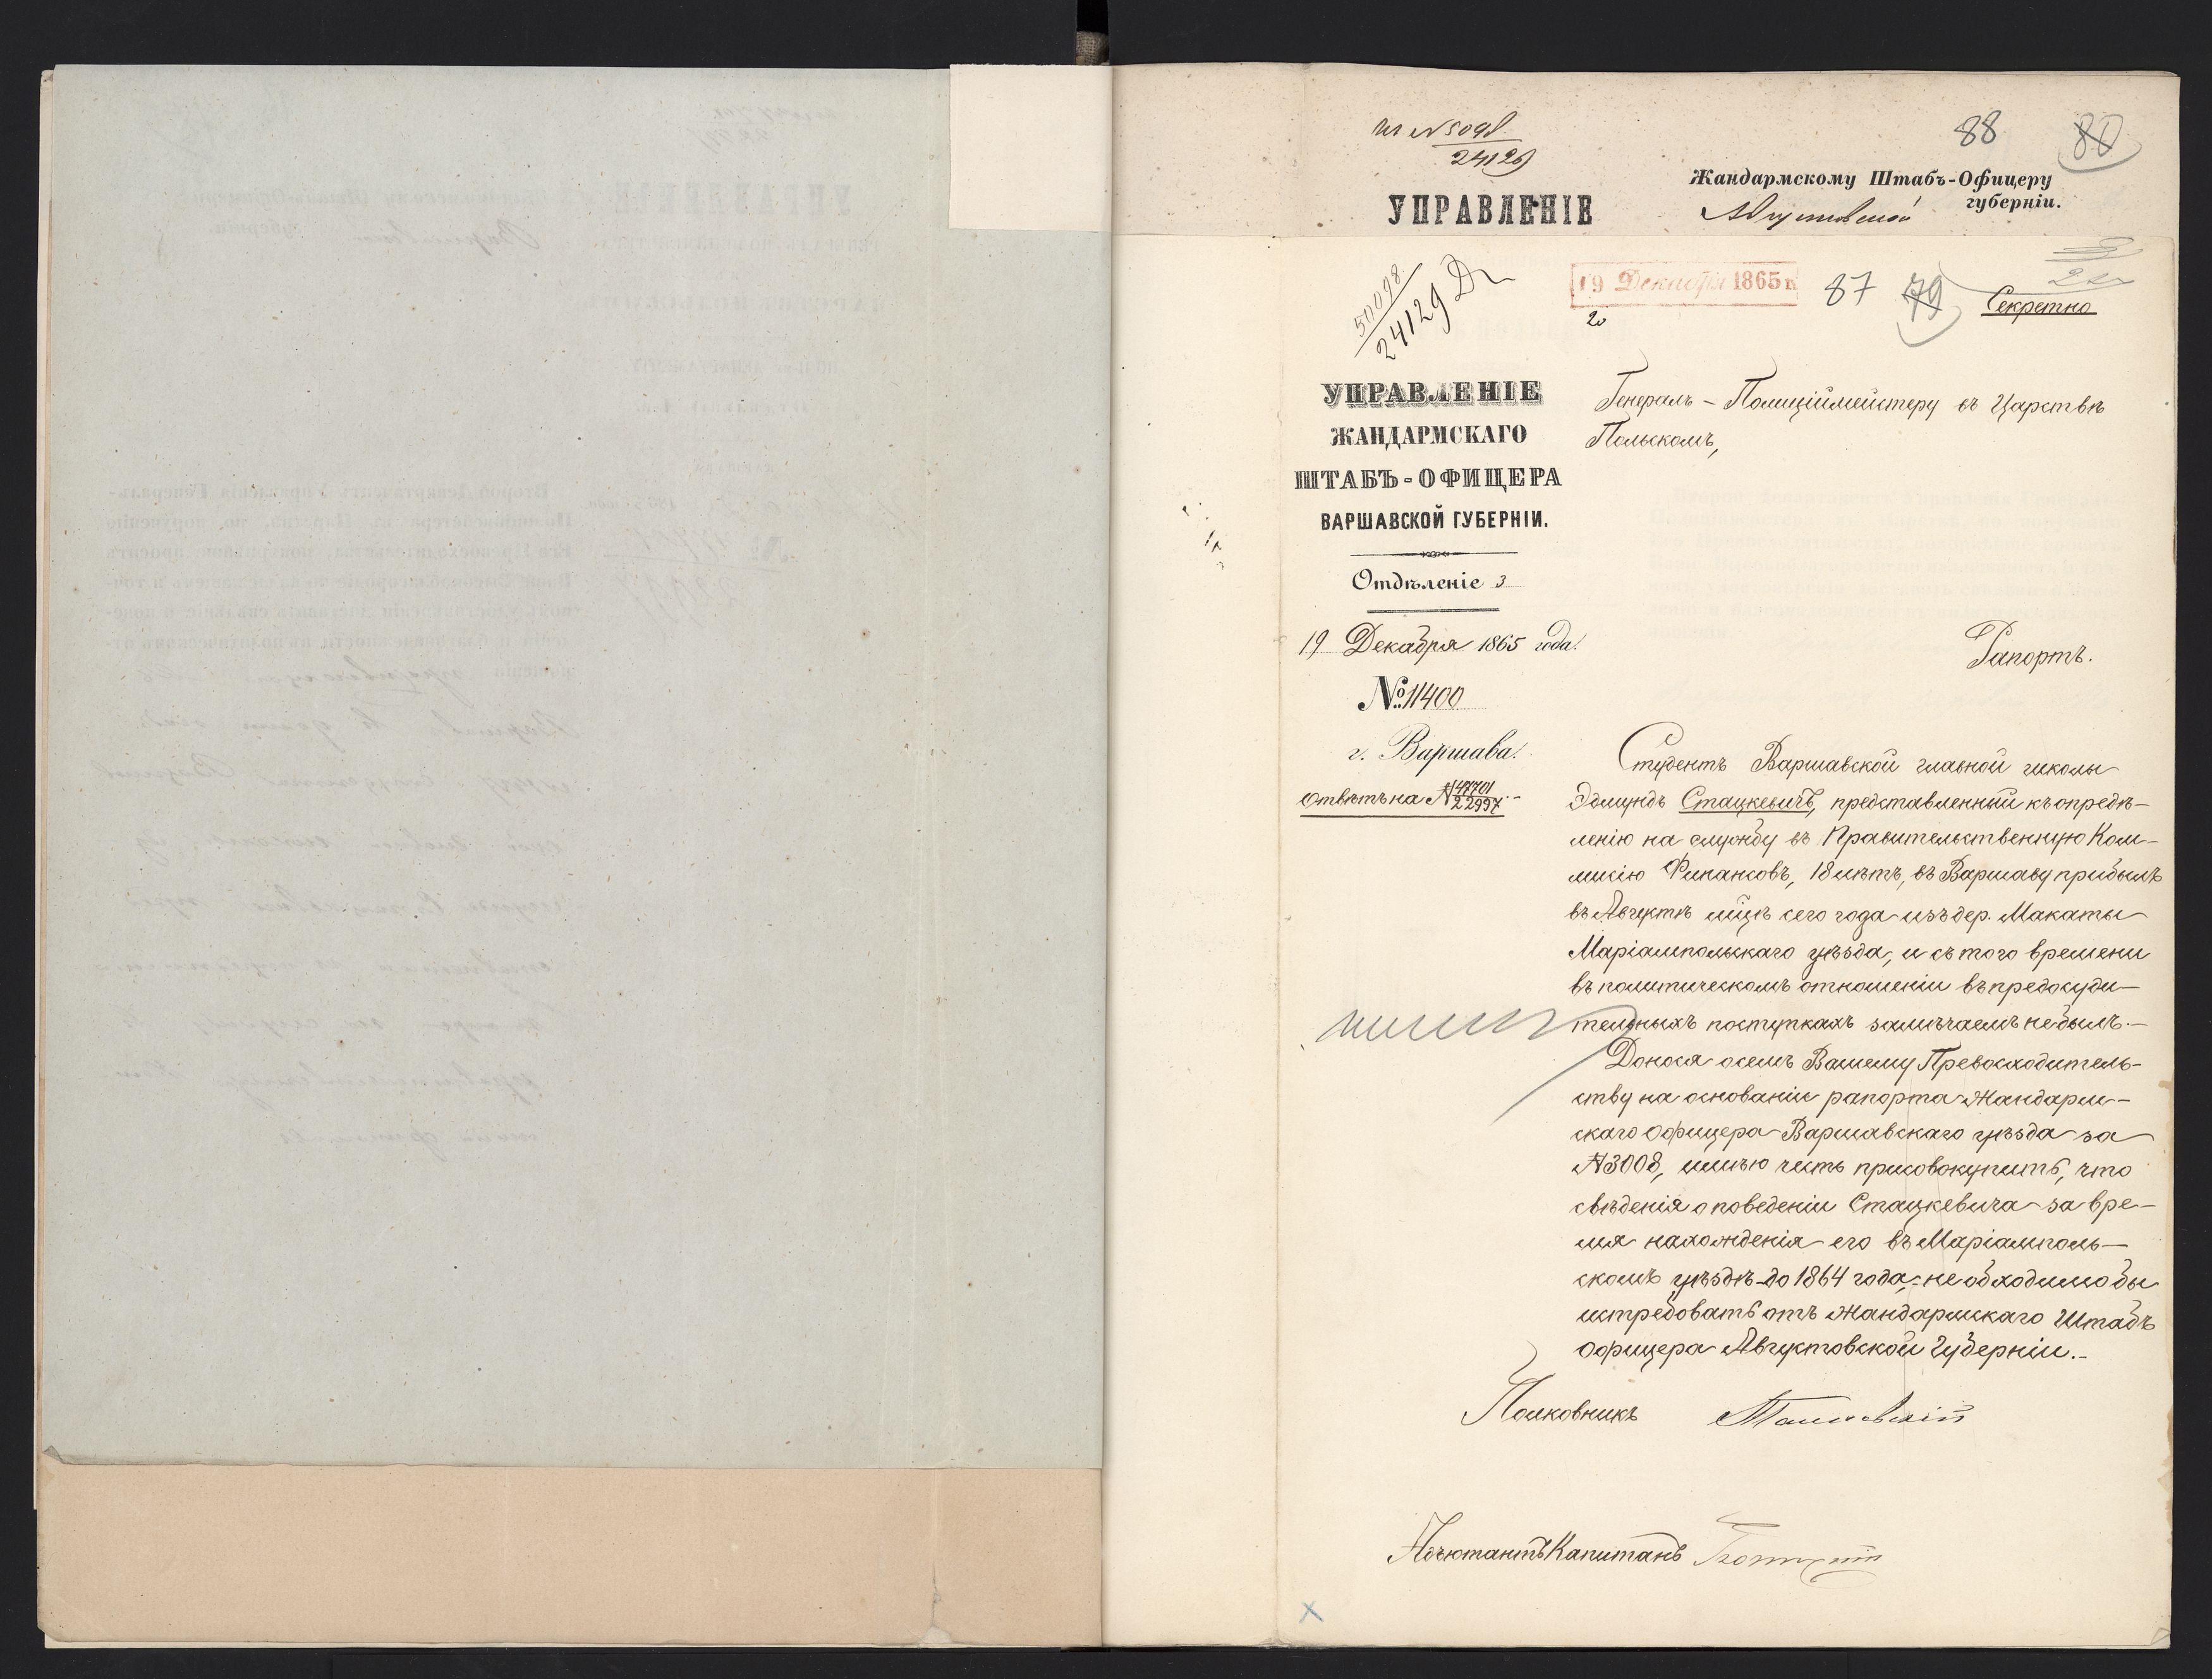 88 80
Жандармскому Штабъ-Офицеру
Августовской губерніи.
УПРАВЛЕНІЕ
50098
24129
19 Декабря 1865
87 79
Секретно
УПРАВЛЕНІЕ
ЖАНДАРМСКАГО
ШТАБЪ-ОФИЦЕРА
ВАРШАВСКОЙ ГУБЕРНІИ.
Отдѣленіе 3
19 Декабря 1865 года.
№ 11400
г. Варшава.
Отвѣтъ на № 47701
22997
Генералъ-Полиціймейстеру въ Царствѣ
Польскомъ,
Рапортъ.
Студентъ Варшавской главной школы
Эдмундъ Стацкевичъ, представленный къ опредѣ-
ленію на службу въ Правительственную Ком-
мисію Финансовъ, 18 лѣтъ, въ Варшаву прибылъ
въ Августѣ м͠цѣ сего года изъ дер. Макаты
Маріампольскаго уѣзда, и съ того времени
въ политическомъ отношеніи въ предосуди-
тельныхъ поступкахъ замѣчаемъ не былъ.-
Донося о семъ Вашему Превосходитель-
ству на основаніи рапорта Жандарм-
скаго Офицера Варшавскаго уѣзда за
№ 3008, имѣю честь присовокупить, что
свѣденія о поведеніи Стацкевича за вре-
мя нахожденія его въ Маріамполь-
скомъ уѣздѣ до 1864 года, необходимо бы
истребовать отъ Жандармскаго Штабъ
Офицера Августовской Губерніи.-
Полковникъ
Адъютантъ Капитанъ